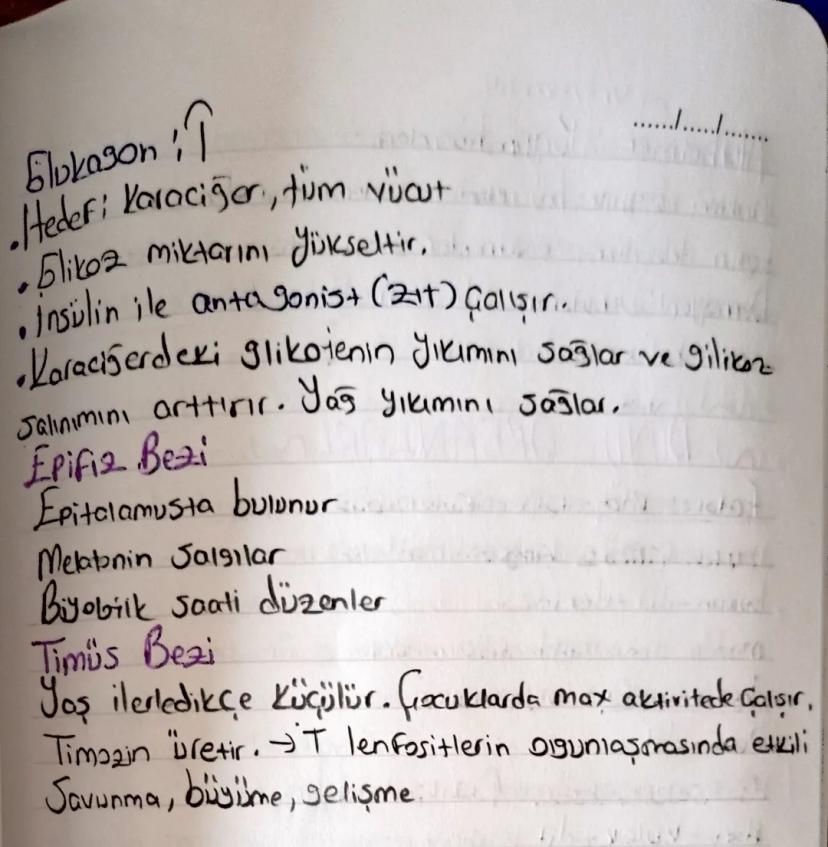 ......./....../.......
Glukagon : ↑
. Hedef: Karaciğer, tüm vücut
. Glikoz miktarını yükseltir.
. İnsülin ile antagonist (zıt) Çalışır.
. Karaciğerdeki glikojenin yıkımını sağlar ve gilikoz
salınımını arttırır. Yağ yıkımını sağlar.
Epifiz Bezi
Epitalamusta bulunur
Melatonin salgılar
Biyolojik saati düzenler
Timüs Bezi
Yaş ilerledikçe küçülür. Çocuklarda max aktivitede Çalışır.
Timozin üretir. → T lenfositlerin olgunlaşmasında etkili
Savunma, büyüme, gelişme.